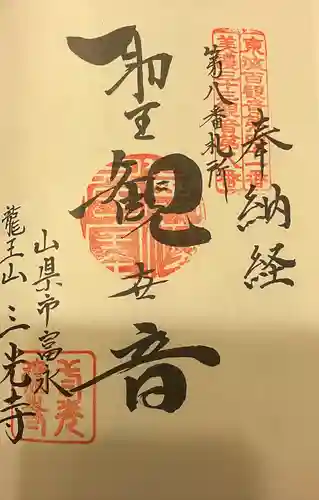 奉納経
東海百観音
美濃三十三観音第八番
第八番札所
聖観世音
山県市富永
龍王山三光寺